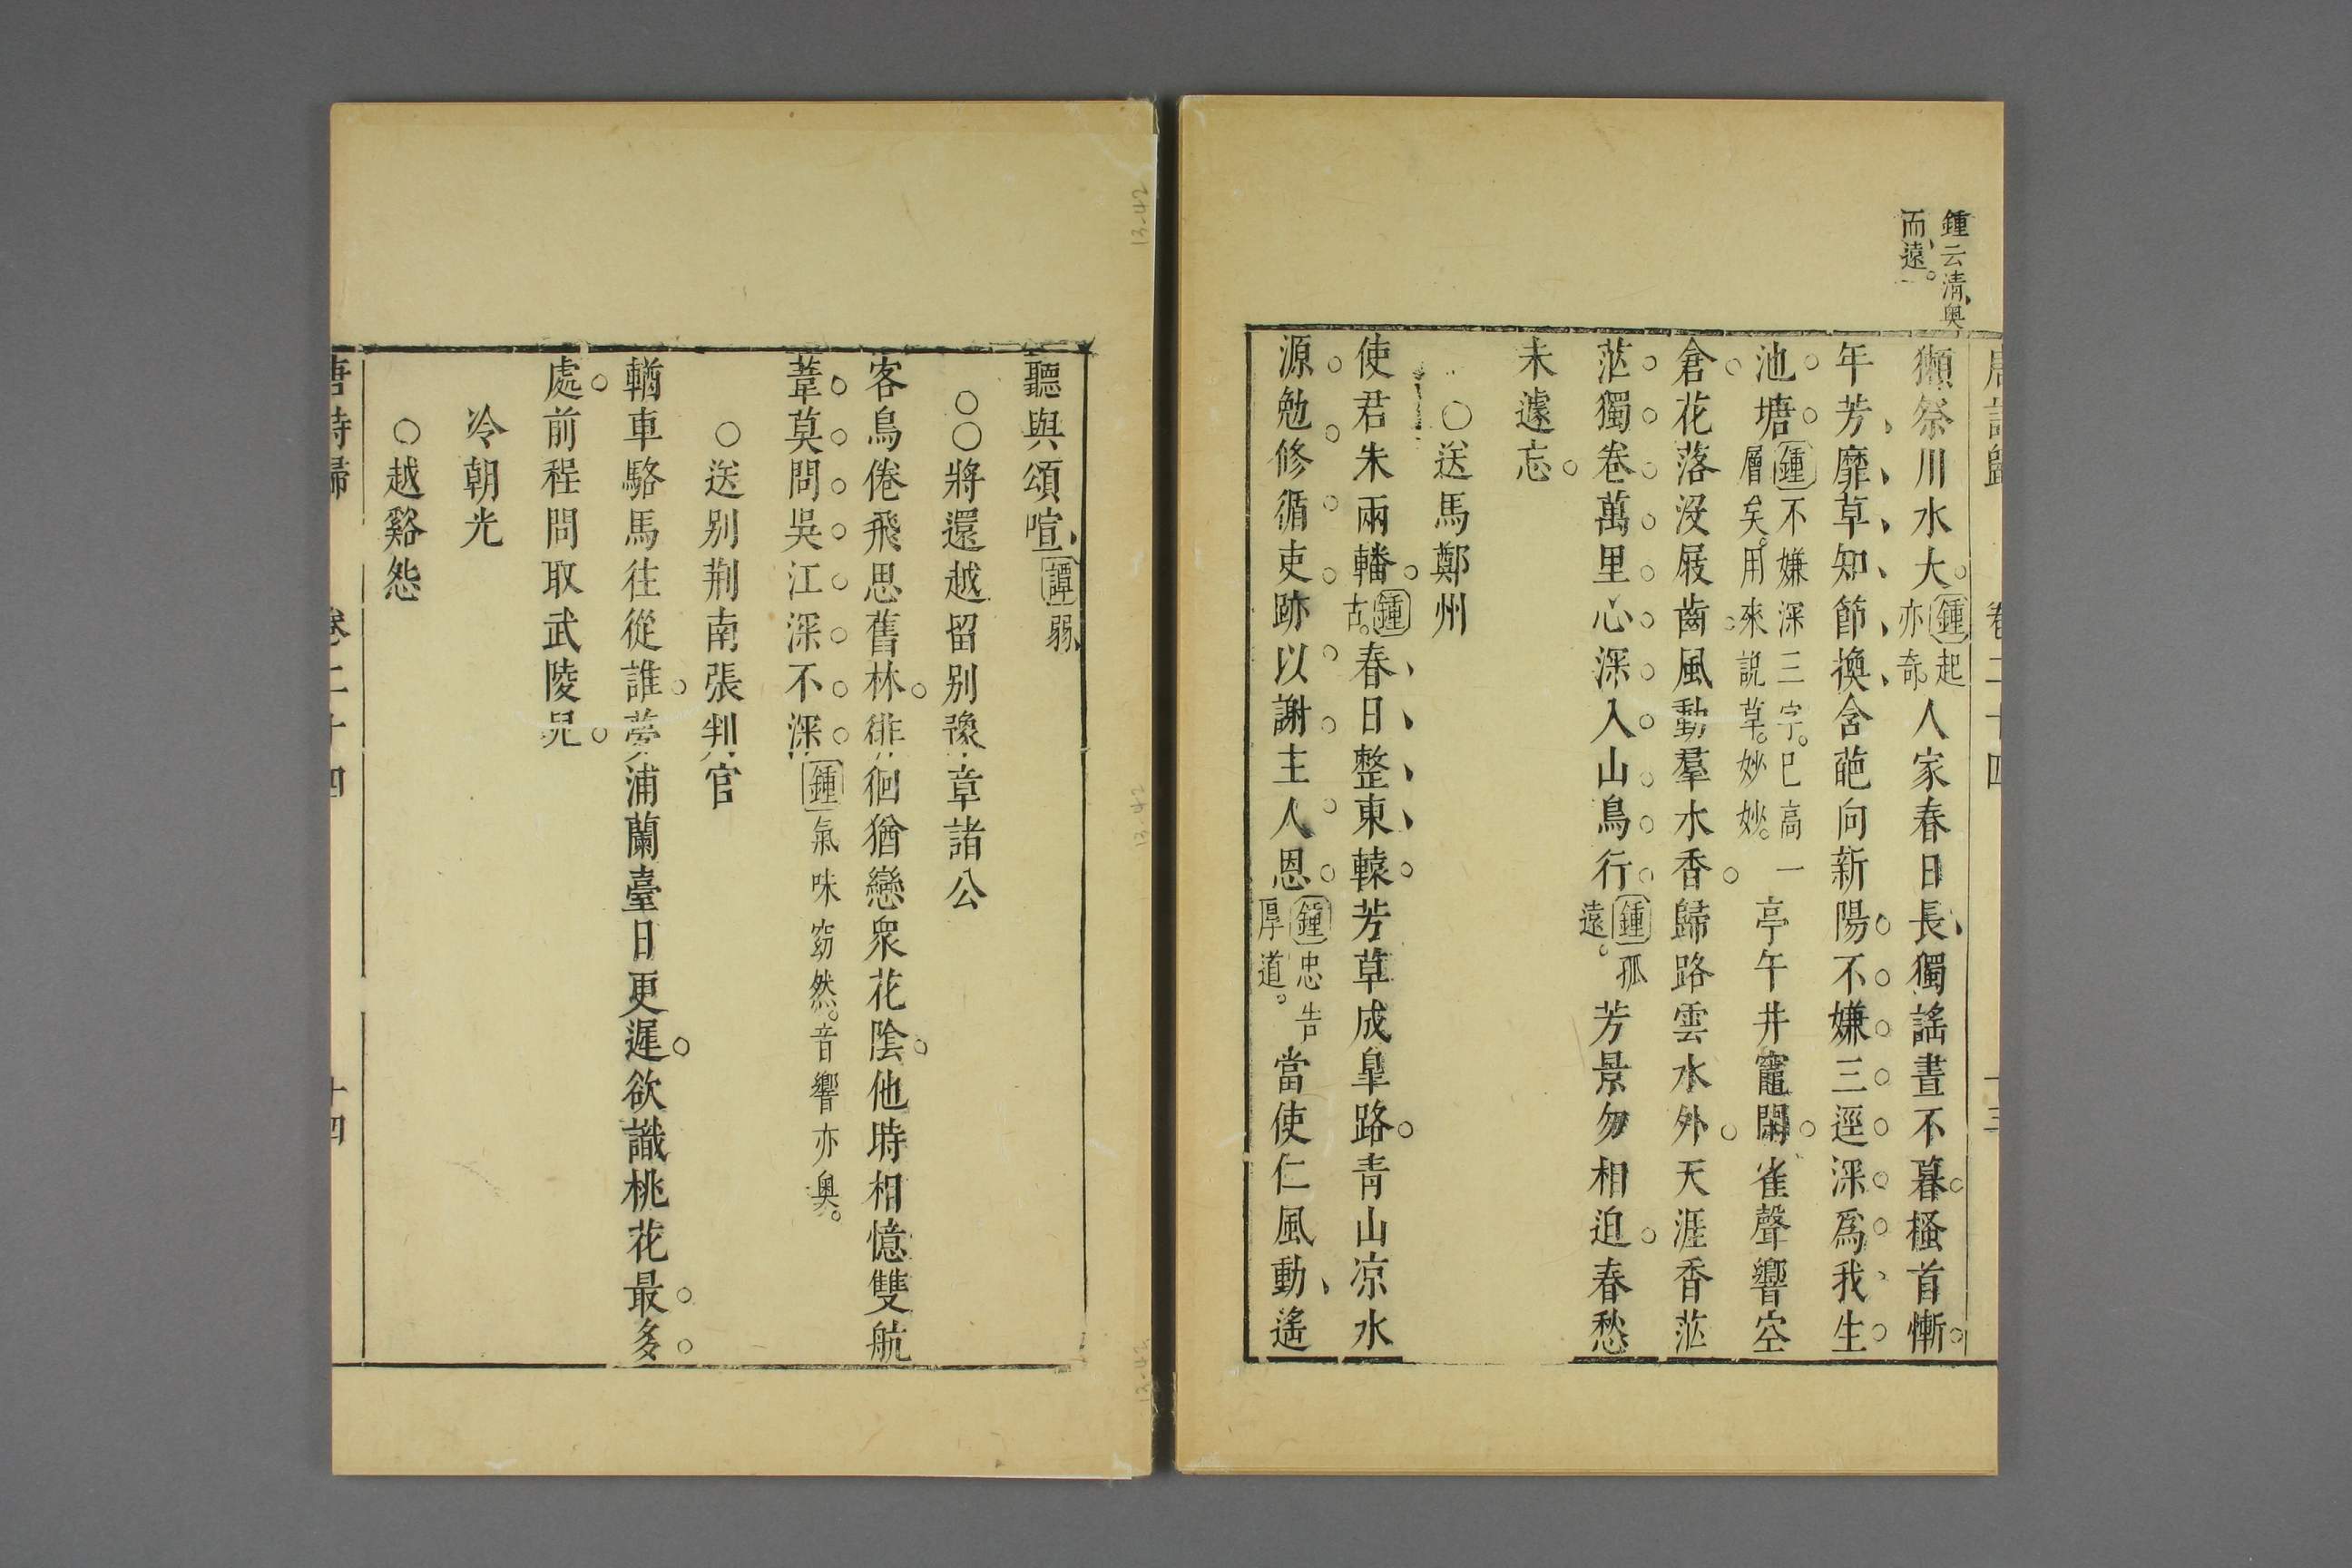 鍾云清奧
而遠。
唐詩歸 卷二十四 十三
獺祭川水大鍾起亦奇人家春日長獨謠晝不暮搔首慚
年芳靡草知節換含葩向新陽不嫌三逕深爲我生
池塘鍾不嫌深三字。已高一層矣。用來說草。妙妙。亭午井竈閑雀聲響空
倉花落沒屐齒風動羣水香歸路雲水外天涯香茫
茫獨卷萬里心深入山鳥行鍾孤遠。芳景勿相迫春愁
未遽忘
○送馬鄭州
使君朱兩轓鍾古。春日整東轅芳草成臯路青山凉水
源勉修循吏跡以謝主人恩鍾忠告厚道。當使仁風動遙
聽與頌喧譚弱
○○將還越留别豫章諸公
客鳥倦飛思舊林徘徊猶戀衆花陰他時相憶雙航
葦莫問吳江深不深鍾氣味窈然。音響亦奥。
○送别荆南張判官
輶車駱馬往從誰夢浦蘭臺日更遲欲識桃花最多
處前程問取武陵兒
冷朝光
○越谿怨
唐詩歸 卷二十四 十四
13-42
13-42
13-42